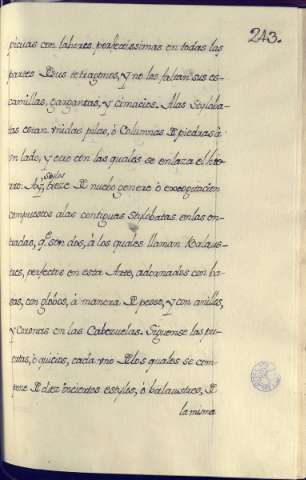 243.
picuas con labores perfectissimas en todas las
partes de sus tetragonos, y no les faltan sus es-
camillas, gargantas, y cimacios. A las Stylobá-
tas estan vnidas pilas, ò Columnas de piedras à
vn lado, y otro con las quales se enlaza el
Stylos
de nuebo genero ò excogitacion
compuestos a las contiguas Stylobatas en las en-
tradas, q.e son dos, à los quales llaman Balaus-
tres, perfectos en esta Arte, adornados con ba-
sas, con globos, à manera de pesse, y con anillas,
y Coronas en las Cabezuelas. Siguense las pu-
ertas, ò quicias, cada vno de los quales se com-
pone de diez inciertos estylos, ò balaustres, de
la misma